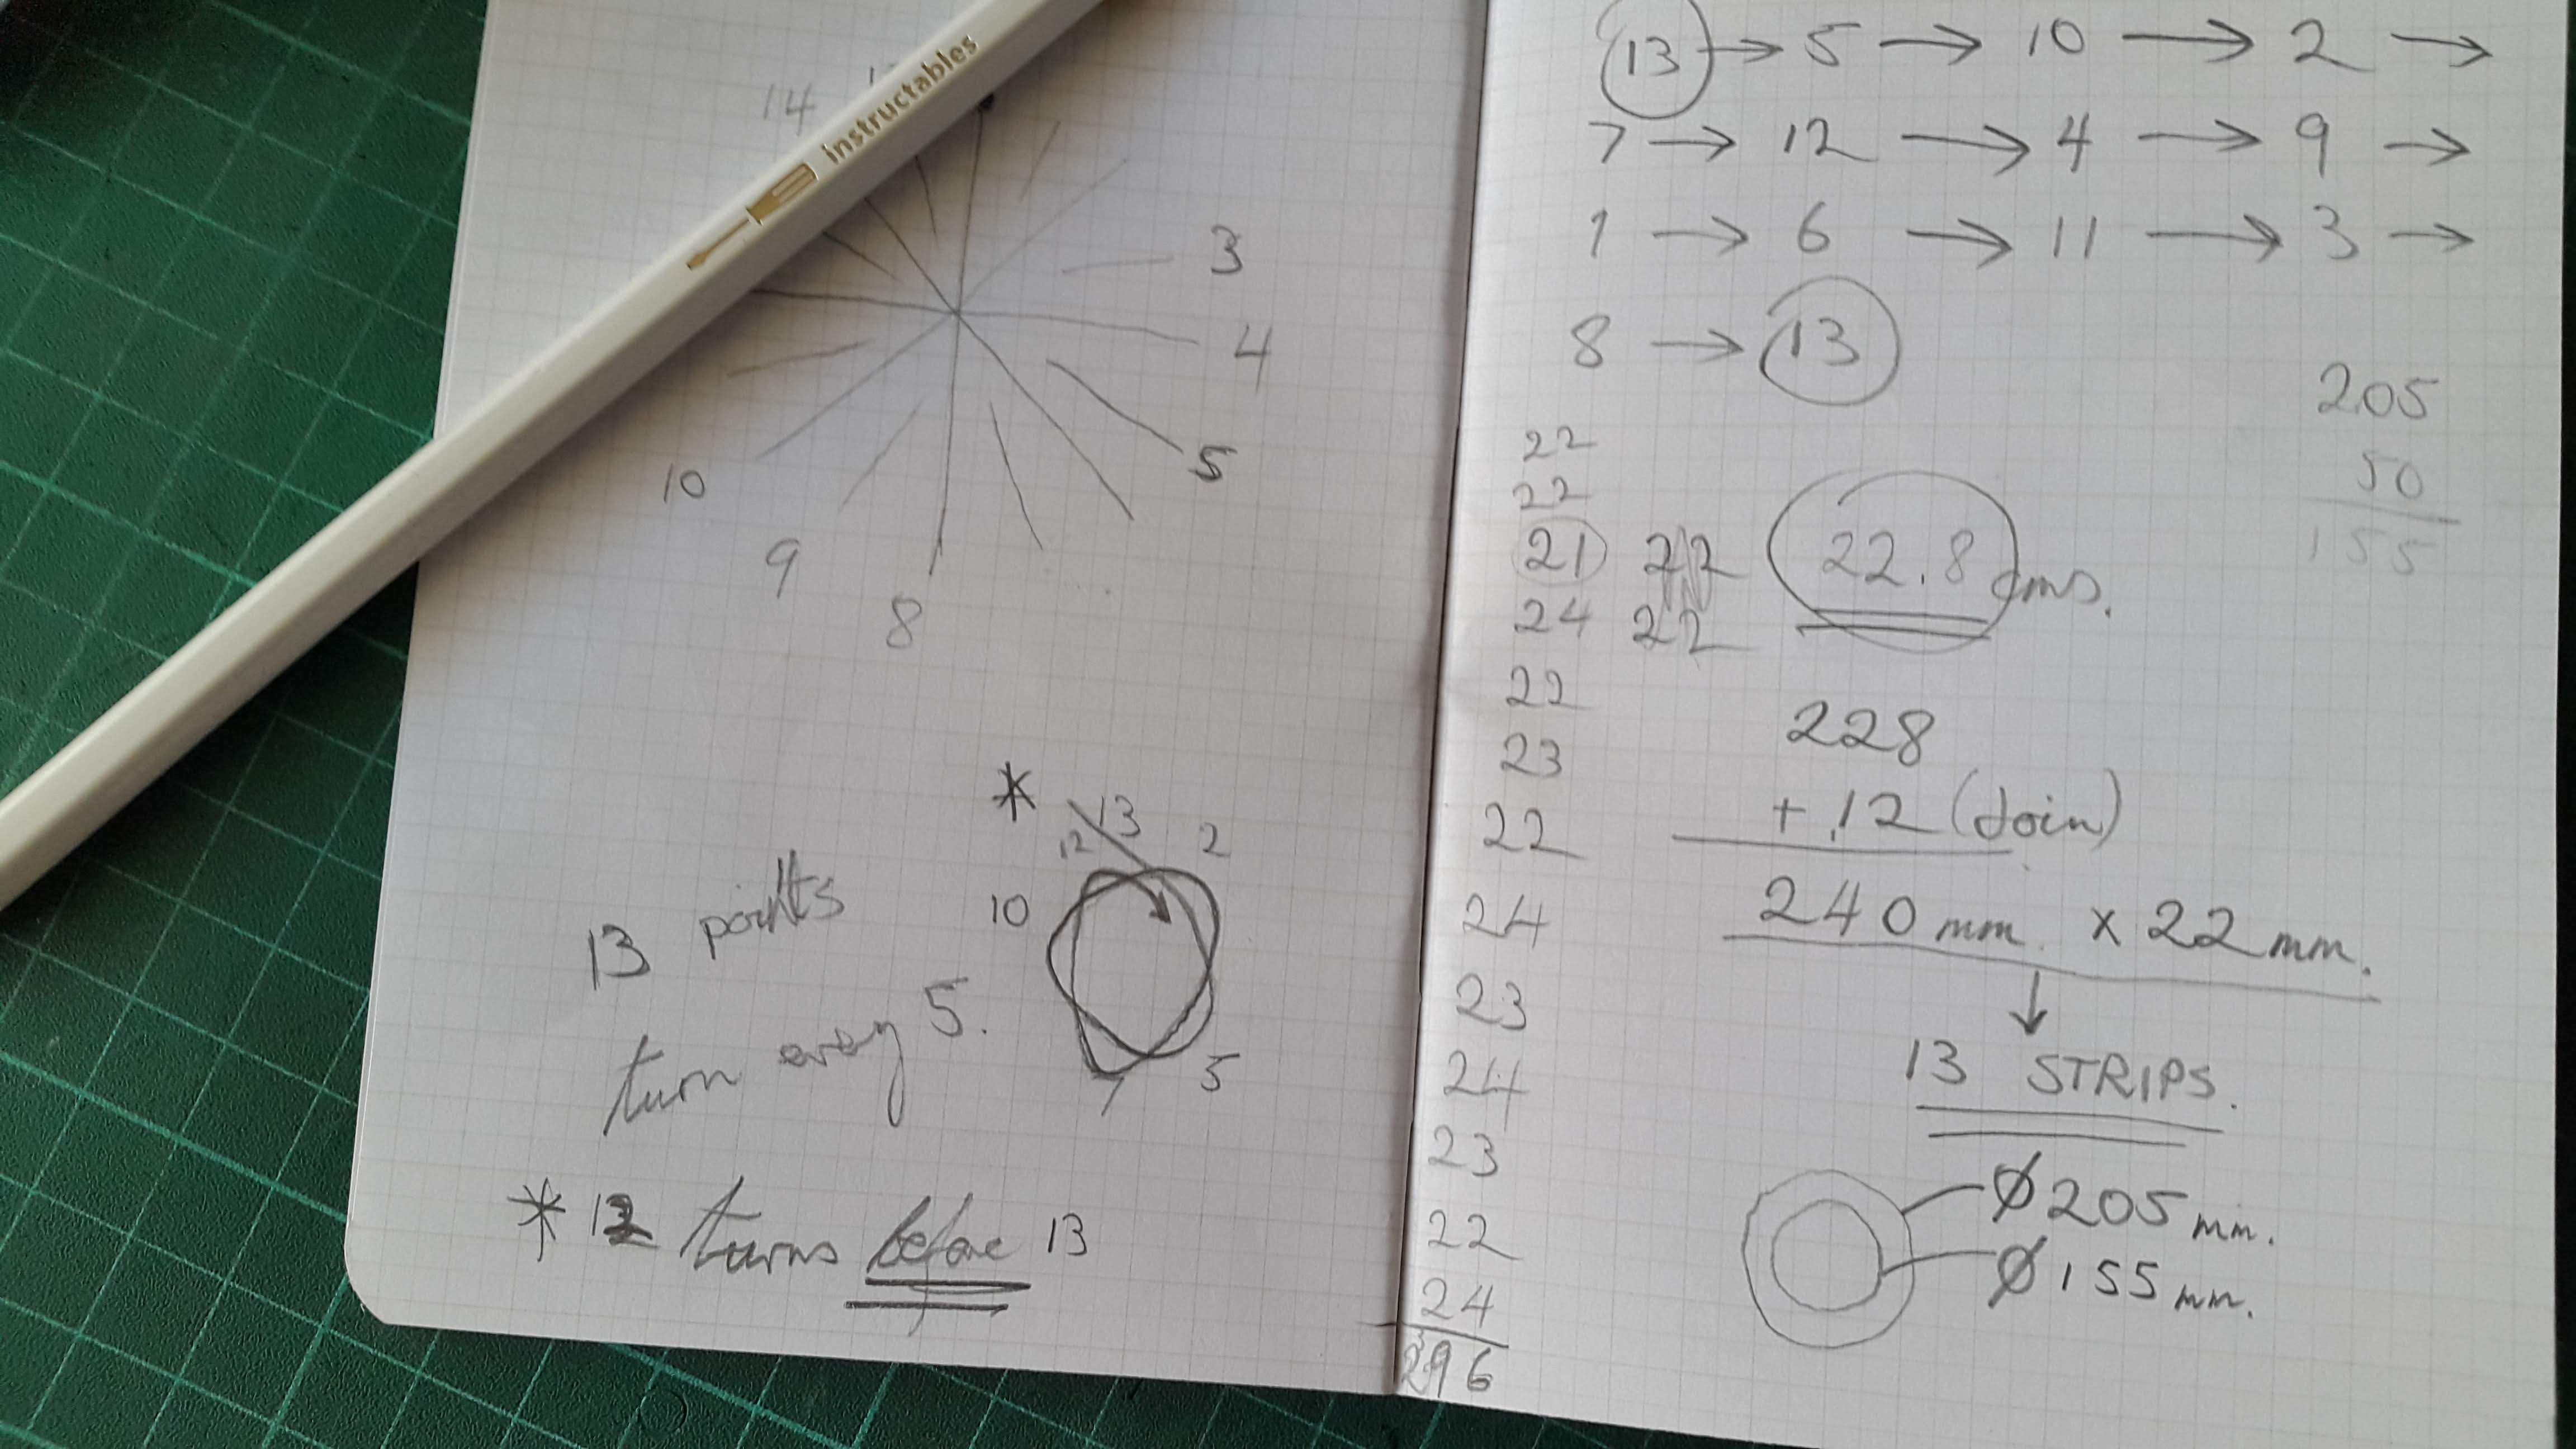 Instructables
14
3
4
5
10
9
8
*
13
12
2
10
5
7
13 points
turn every 5.
* 12 turns before 13
13 → 5 → 10 → 2 →
7 → 12 → 4 → 9 →
1 → 6 → 11 → 3 →
8 → 13
205
50
155
22
22
21 22
24 22
22
23
22
24
23
24
23
22
24
296
22.8 cms.
228
+ 12 (Join)
240 mm. x 22 mm.
↓
13 STRIPS.
Ø 205 mm.
Ø 155 mm.